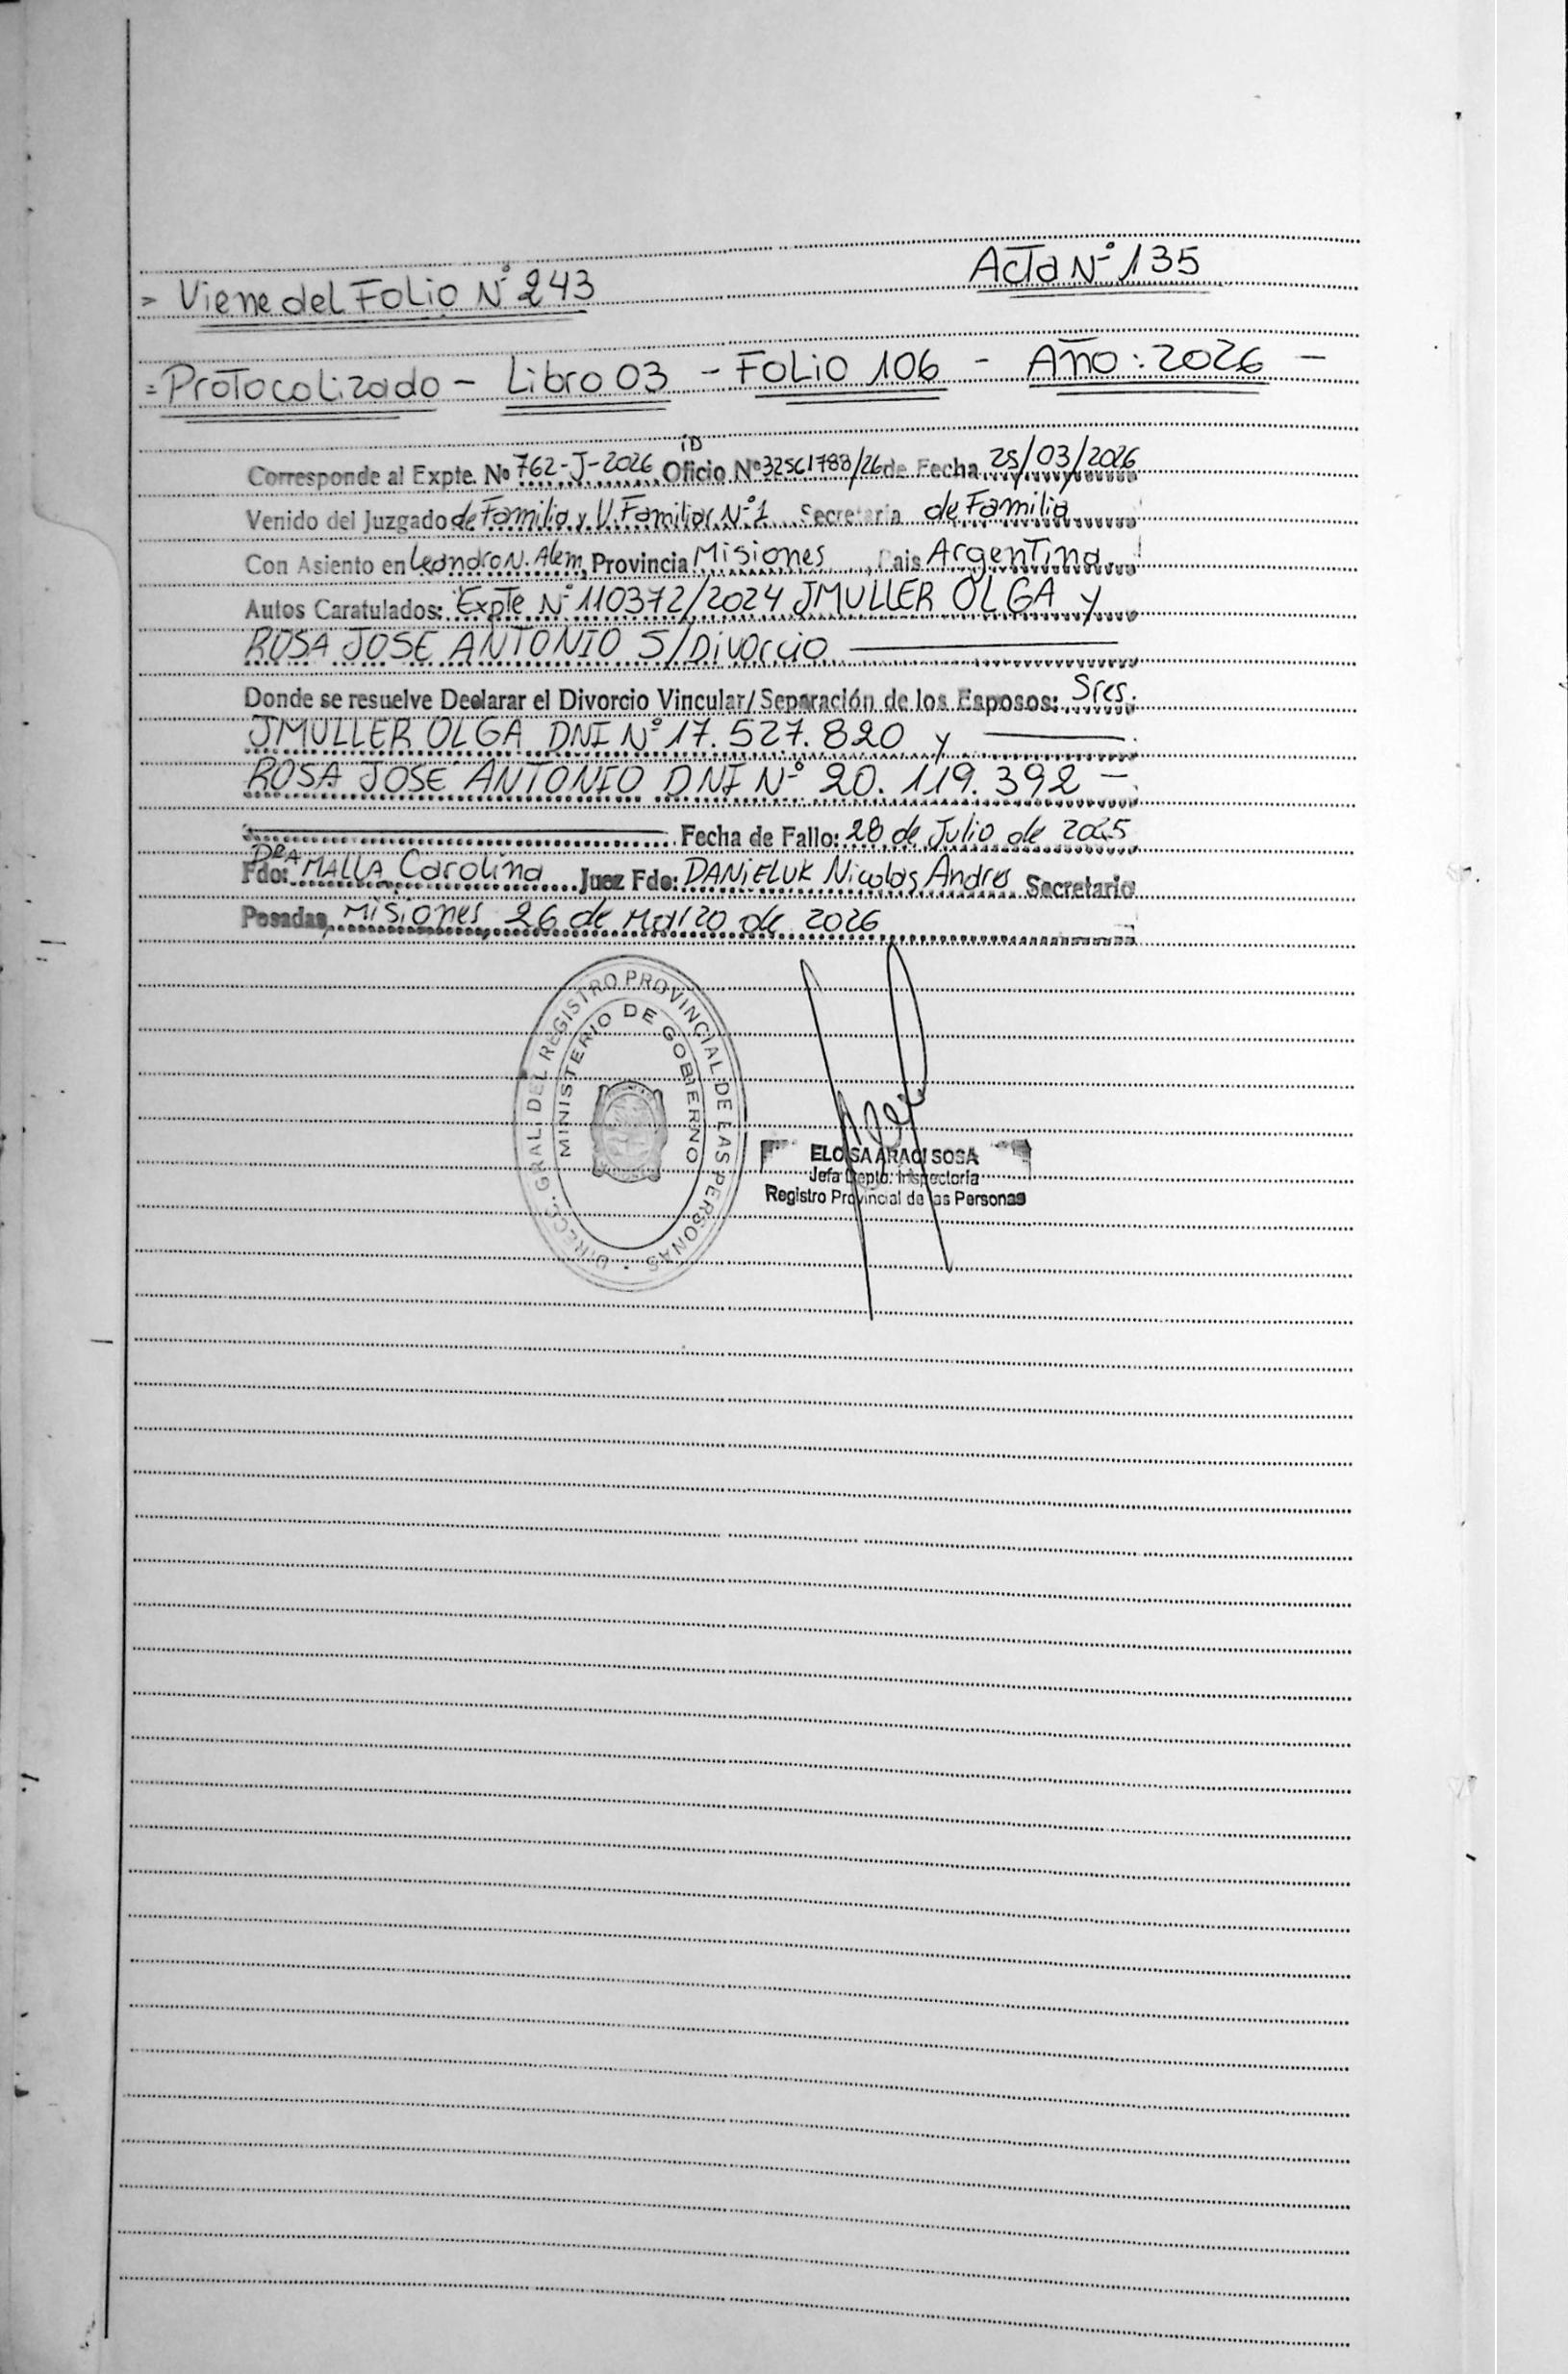 Acta Nº 135
= Viene del Folio Nº 243
= Protocolizado - Libro 03 - Folio 106 - Año: 2026 -
Corresponde al Expte. Nº 762-J-2026 iD Oficio Nº 32561788/26 de Fecha 25/03/2026
Venido del Juzgado de Familia y V. Familiar Nº 1 Secretaría de Familia
Con Asiento en Leandro N. Alem, Provincia Misiones, Pais Argentina
Autos Caratulados: Expte Nº 110372/2024 JMULLER OLGA y
ROSA JOSE ANTONIO S/Divorcio
Donde se resuelve Declarar el Divorcio Vincular/Separación de los Esposos: Sres.
JMULLER OLGA DNI Nº 17.527.820 y
ROSA JOSE ANTONIO DNI Nº 20.119.392 -
Fecha de Fallo: 28 de Julio de 2025
Fdo: Dra MALLA Carolina Juez Fdo: DANIELUK Nicolas Andres Secretario
Posadas, Misiones, 26 de Marzo de 2026
DIRECC. GRAL. DEL REGISTRO PROVINCIAL DE LAS PERSONAS
MINISTERIO DE GOBIERNO
ELOISA ARACI SOSA
Jefa Depto. Inspectoría
Registro Provincial de las Personas